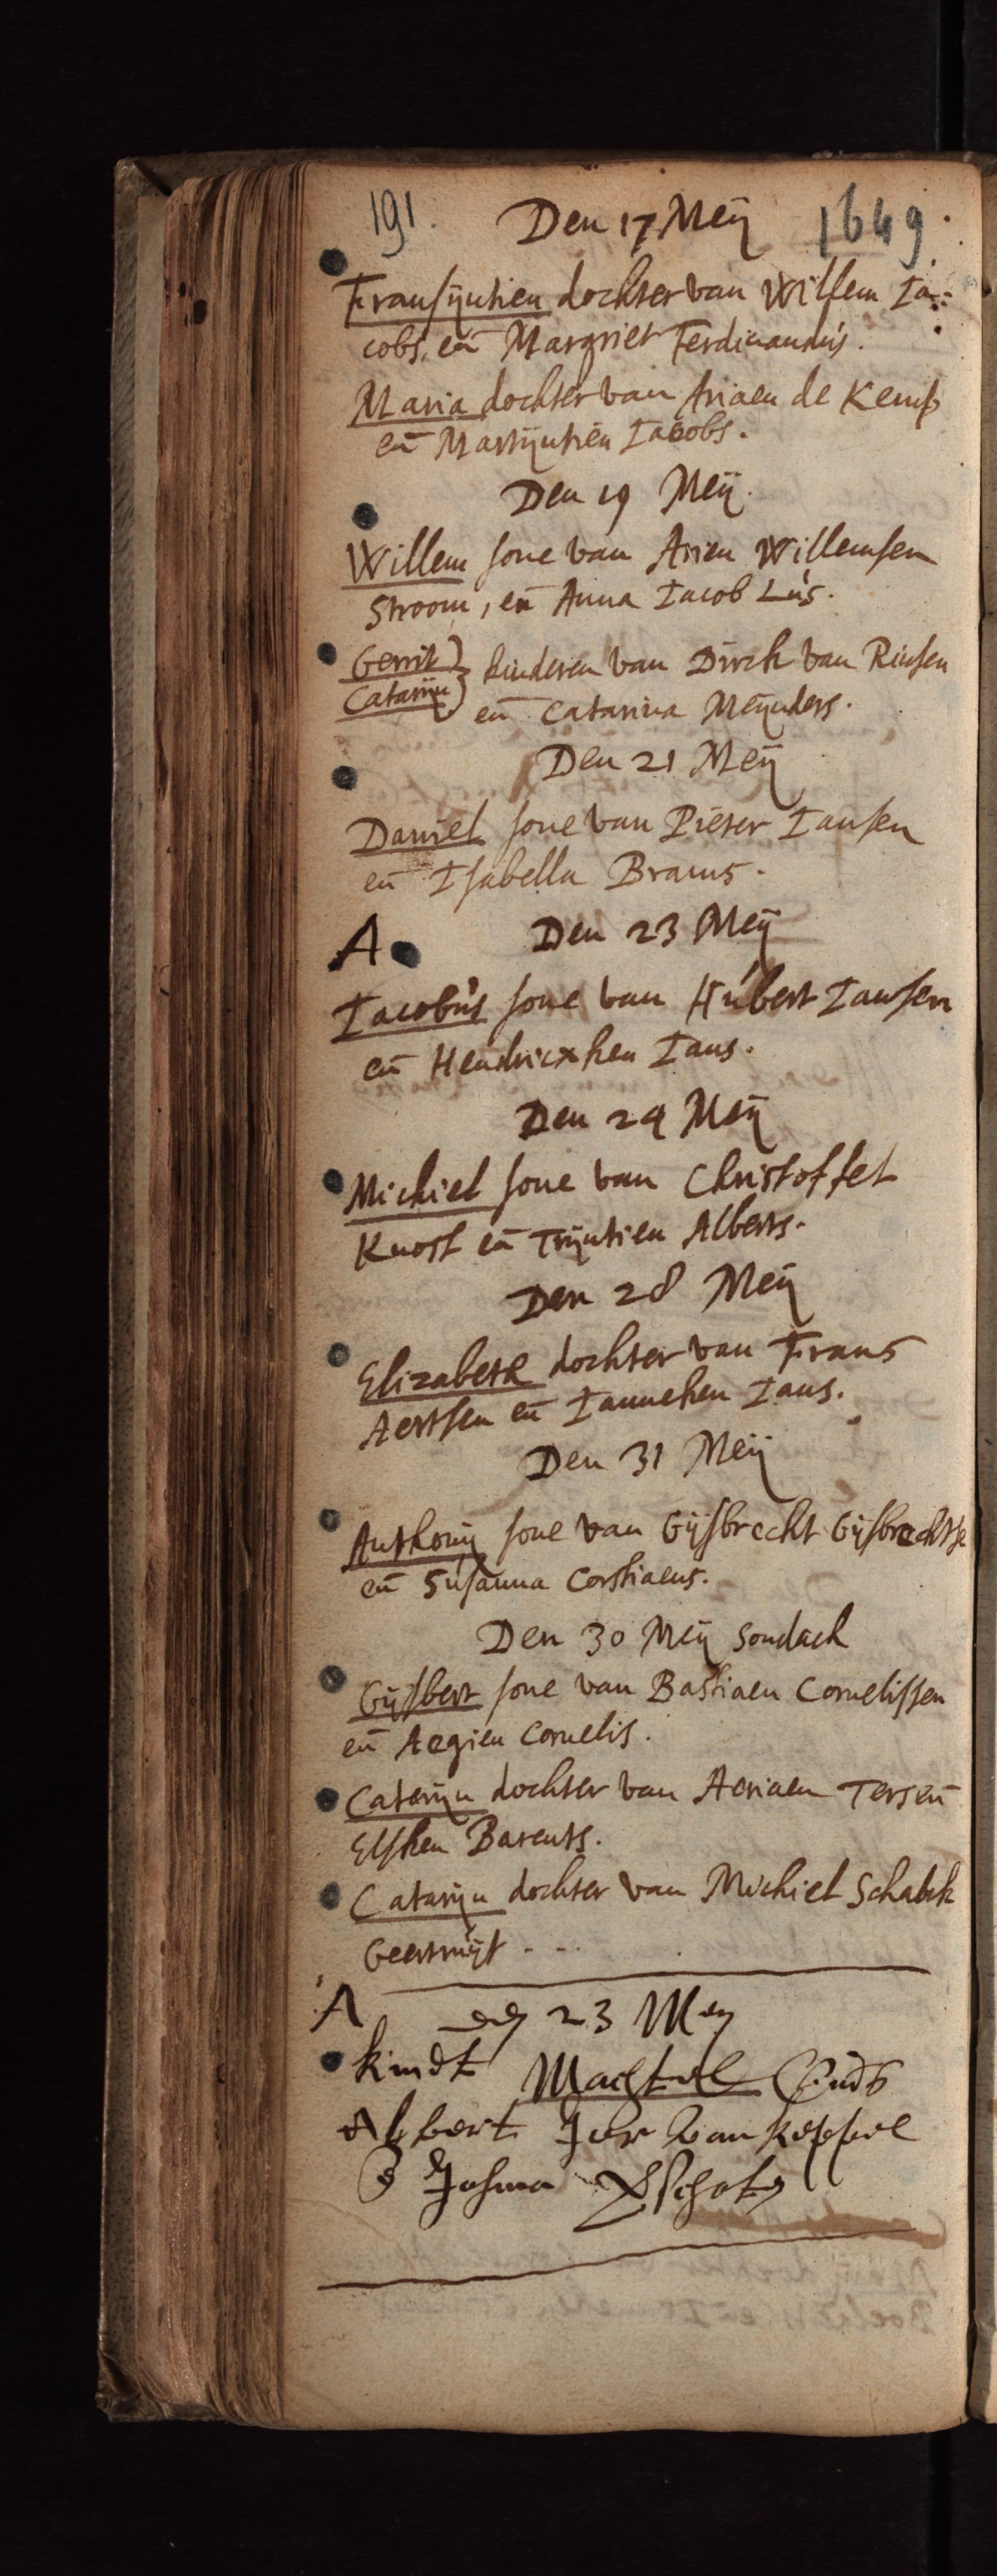 191. Den 17 Meÿ 1649.
Fransijntien dochter van Willem Ja:
cobs, en̄ Margriet Ferdinandus.
Maria dochter van Ariaen de Kemp
en̄ Martijntien Jacobs.
Den 19 Meÿ.
Willem sone van Arien Willemsen
Stroom, en̄ Anna Jacob Lus.
Gerrit } kinderen van Dirck van Rinsen
Catarijn } en̄ Catarina Meÿnders.
Den 21 Meÿ
Daniel sone van Pieter Jansen
en̄ Isabella Brams.
A Den 23 Meÿ
Jacobus sone van Hubert Jansen
en̄ Hendricxken Jans.
Den 24 Meÿ
Michiel sone van Christoffel
Knost en̄ Trijntien Alberts.
Den 28 Meÿ
Elizabeth dochter van Frans
Aertsen en̄ Janneken Jans.
Den 31 Meÿ
Anthonij sone van Gijsbrecht Gijsbrechtse
en̄ Susanna Corstiaens.
Den 30 Meÿ Sondach
Gijsbert sone van Bastiaen Cornelissen
en̄ Aegien Cornelis.
Caterijn dochter van Aeriaen Tersen̄
Elsken Barents.
Catarijn dochter van Michiel Schabk
Geertruijt - - -
A den 23 Mey
kindt Machtel
Albert van Keppel